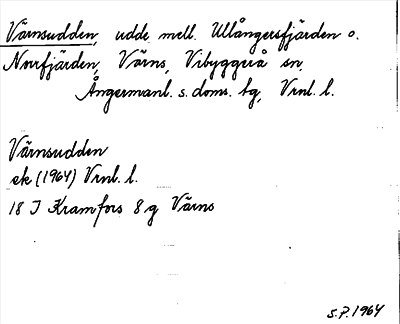 Värnsudden, udde mell. Ullångersfjärden o.
Norrfjärden, Värns, Vibyggerå sn,
Ångermanl. s. doms. tg, Vrnl. l.
Värnsudden
ek (1964) Vrnl. l.
18 I Kramfors 8 g Värns
S.P. 1964